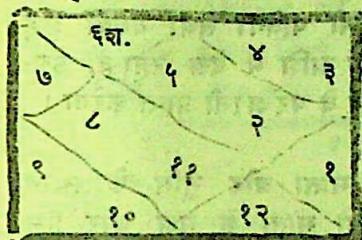 ६श. ४
७ ५ ३
८ २
९ ११ १
१० १२